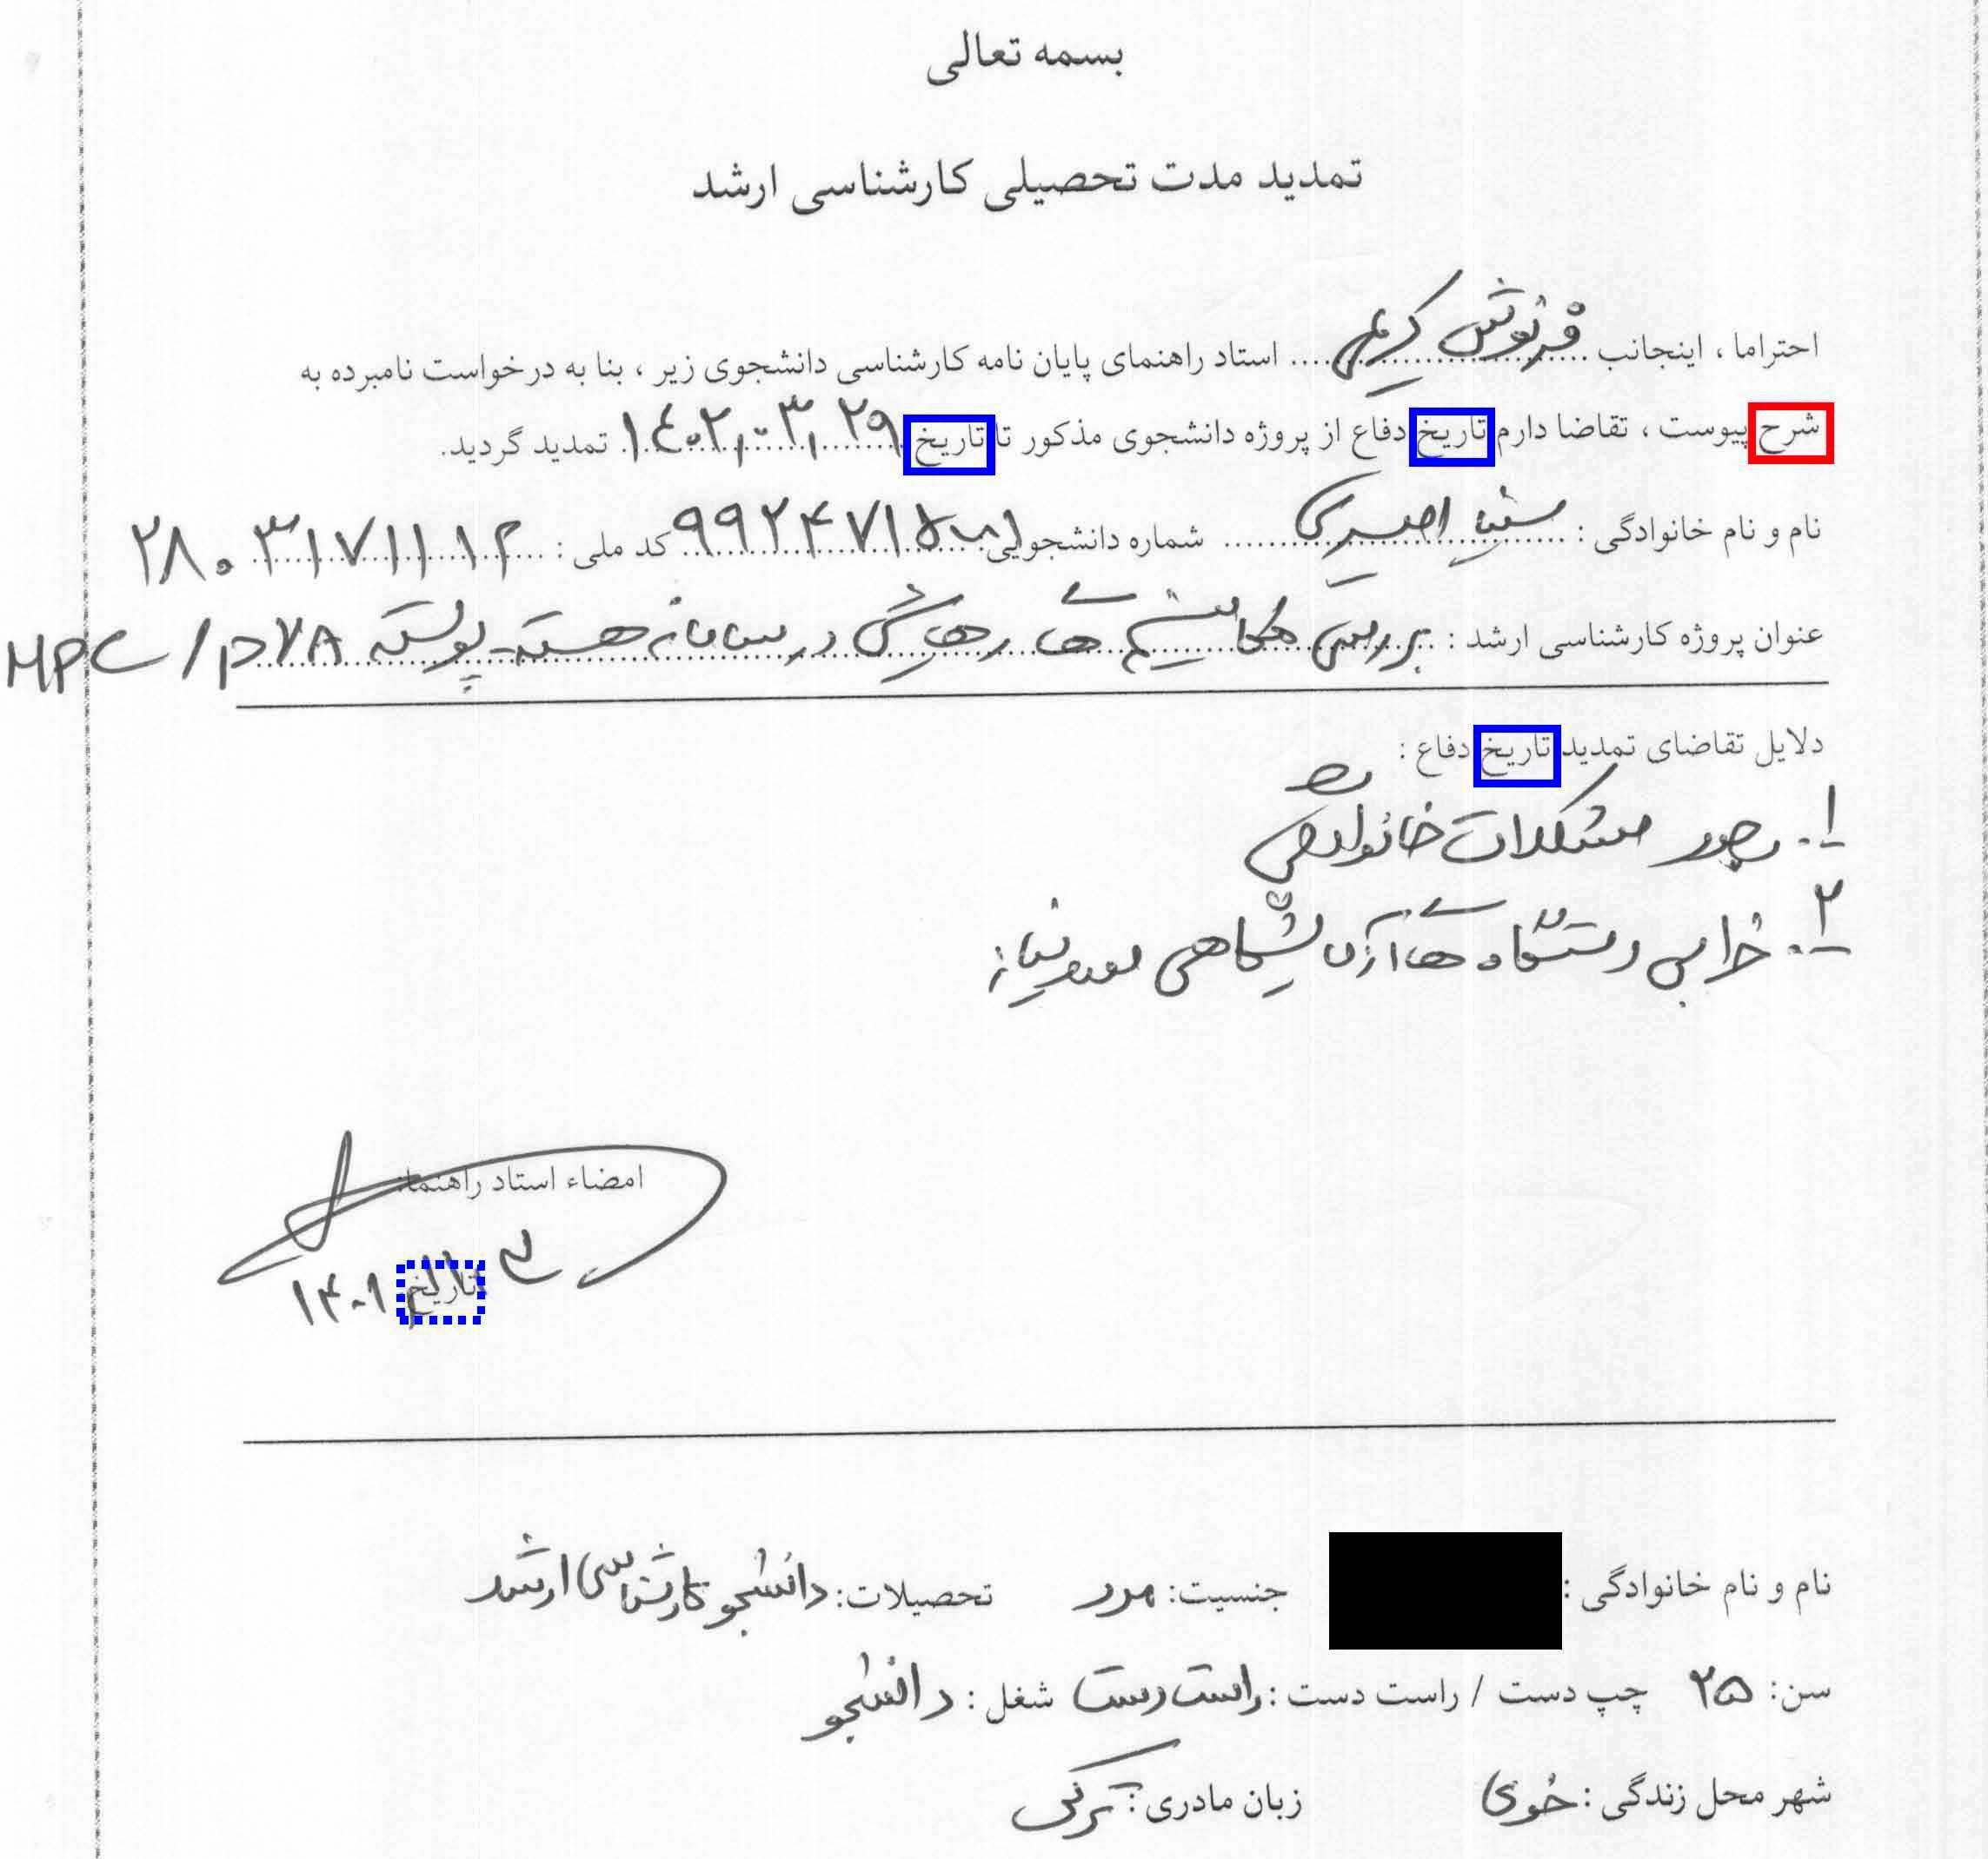 بسمه تعالی
تمدید مدت تحصیلی کارشناسی ارشد
احتراما ، اینجانب فرنوش کریمی استاد راهنمای پایان نامه کارشناسی دانشجوی زیر ، بنا به درخواست نامبرده به
شرح پیوست ، تقاضا دارم تاریخ دفاع از پروژه دانشجوی مذکور تا تاریخ ۱۴۰۲,۰۳,۲۹ تمدید گردید.
نام و نام خانوادگی : شماره دانشجویی کد ملی : ۲۸۰۳۱۷۱۱۱۲
عنوان پروژه کارشناسی ارشد : بررسی مکانیسم های رهایش در سامانه هسته-پوسته
دلایل تقاضای تمدید تاریخ دفاع :
۱. وجود مشکلات خانوادگی
۲. خرابی دستگاه های آزمایشگاهی مورد نیاز
امضاء استاد راهنما:
تاریخ ۱۴۰۱
نام و نام خانوادگی : جنسیت: مرد تحصیلات: دانشجو کارشناسی ارشد
سن: ۲۵ چپ دست / راست دست : راست دست شغل : دانشجو
شهر محل زندگی : خوی زبان مادری : ترکی